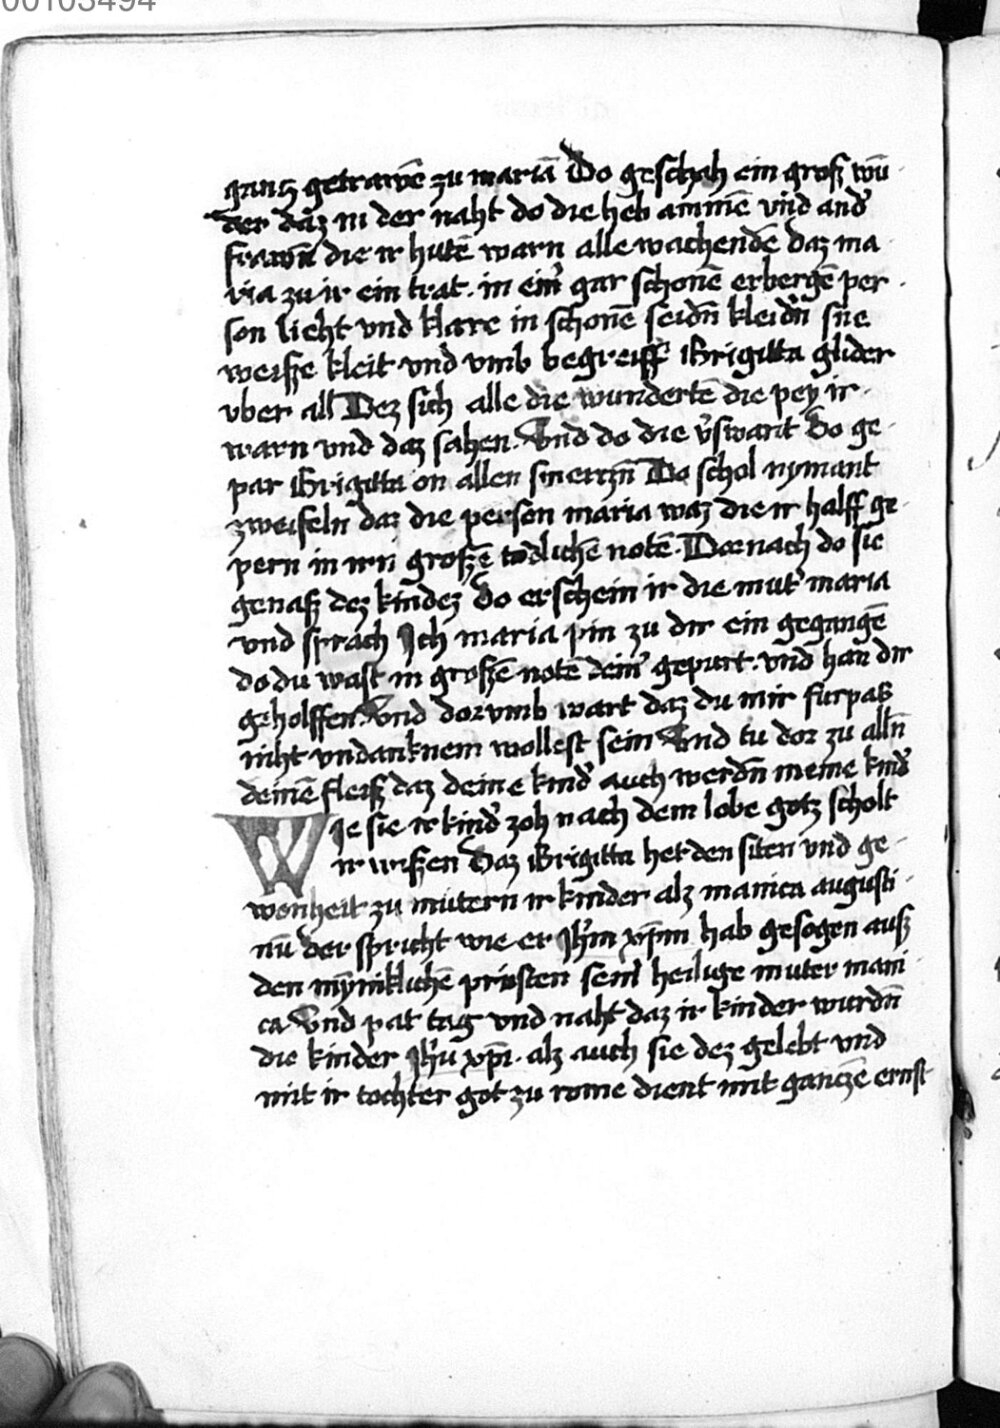 00103494
gantz getrawē zu mariā Do geschah ein groſz wū
der daz in der naht do die heb ammē vn̄d and̉
frawn̄ die ir hutē warn alle wachendē daz ma
ria zu ir ein trat · in ein̉ gar schonē erbergē per
son lieht vnd klare in schonē seidn̄ kleidn̄ sne
weiſze kleit vnd vmb begreiff Brigitta glider
vber all Dez sich alle die wundertē die pey ir
warn vnd daz sahen · Vnd do die v̉swant Do ge
par Brigitta on allen smertzn̄ Do schol nymant
zweifeln daz die person maria waz die ir halff ge
pern in irn̄ groſzē todlichē notē · Dornach do sie
genaſz dez kindez Do erschein ir die mut̉ maria
vnd sprach Ich maria pin zu dir ein gegangē
do du wast in groſzē notē dein̉ gepurt · vnd han dir
geholffen · Vnd dorvmb wart daz du mir furpas
niht vndanknem wollest sein Vnd tu dor zu alln̄
deinē fleiſz daz deine kind̉ auch werdn̄ meine kind̉
Wie sie ir kind̉ zoh nach dem lobe gotz scholt
ir wiſzen Daz Brigitta het den siten vnd ge
wonheit zu mütern ir kinder alz manica augusti
nū der spricht wie er Jhm̄ xp̄m hab gesogen auſz
den mȳniklichē prüsten sein̉ heilige muter mani
ca · Vnd pat tag vnd naht daz ir kinder wurdn̄
die kinder Jhū xp̄i · alz auch sie dez gelebt vnd
mit ir tochter got zu rome dient mit ganczē ernst